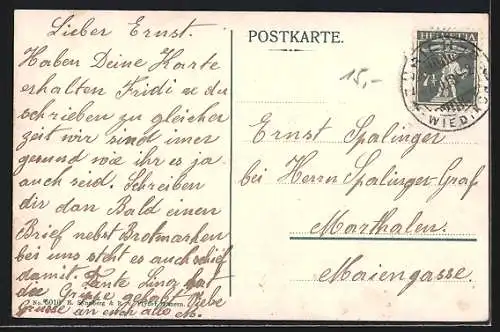 Lieber Ernst.
Haben Deine Karte
erhalten Fridi u du
schrieben zu gleicher
zeit wir sind imer
gesund wie ihr es ja
auch seid. Schreiben
dir dan Bald einen
Brief nebst Brotmarken
bei uns steht es auch schief
damit. Tante hat
die Grippe gehabt Liebe
Grüsse an euch alle M.
POSTKARTE.
HELVETIA
7½
WIEDIKON
15,-
Ernst Spalinger
bei Herrn Spalinger-Graf
Marthalen.
Maiengasse.
No. 6010